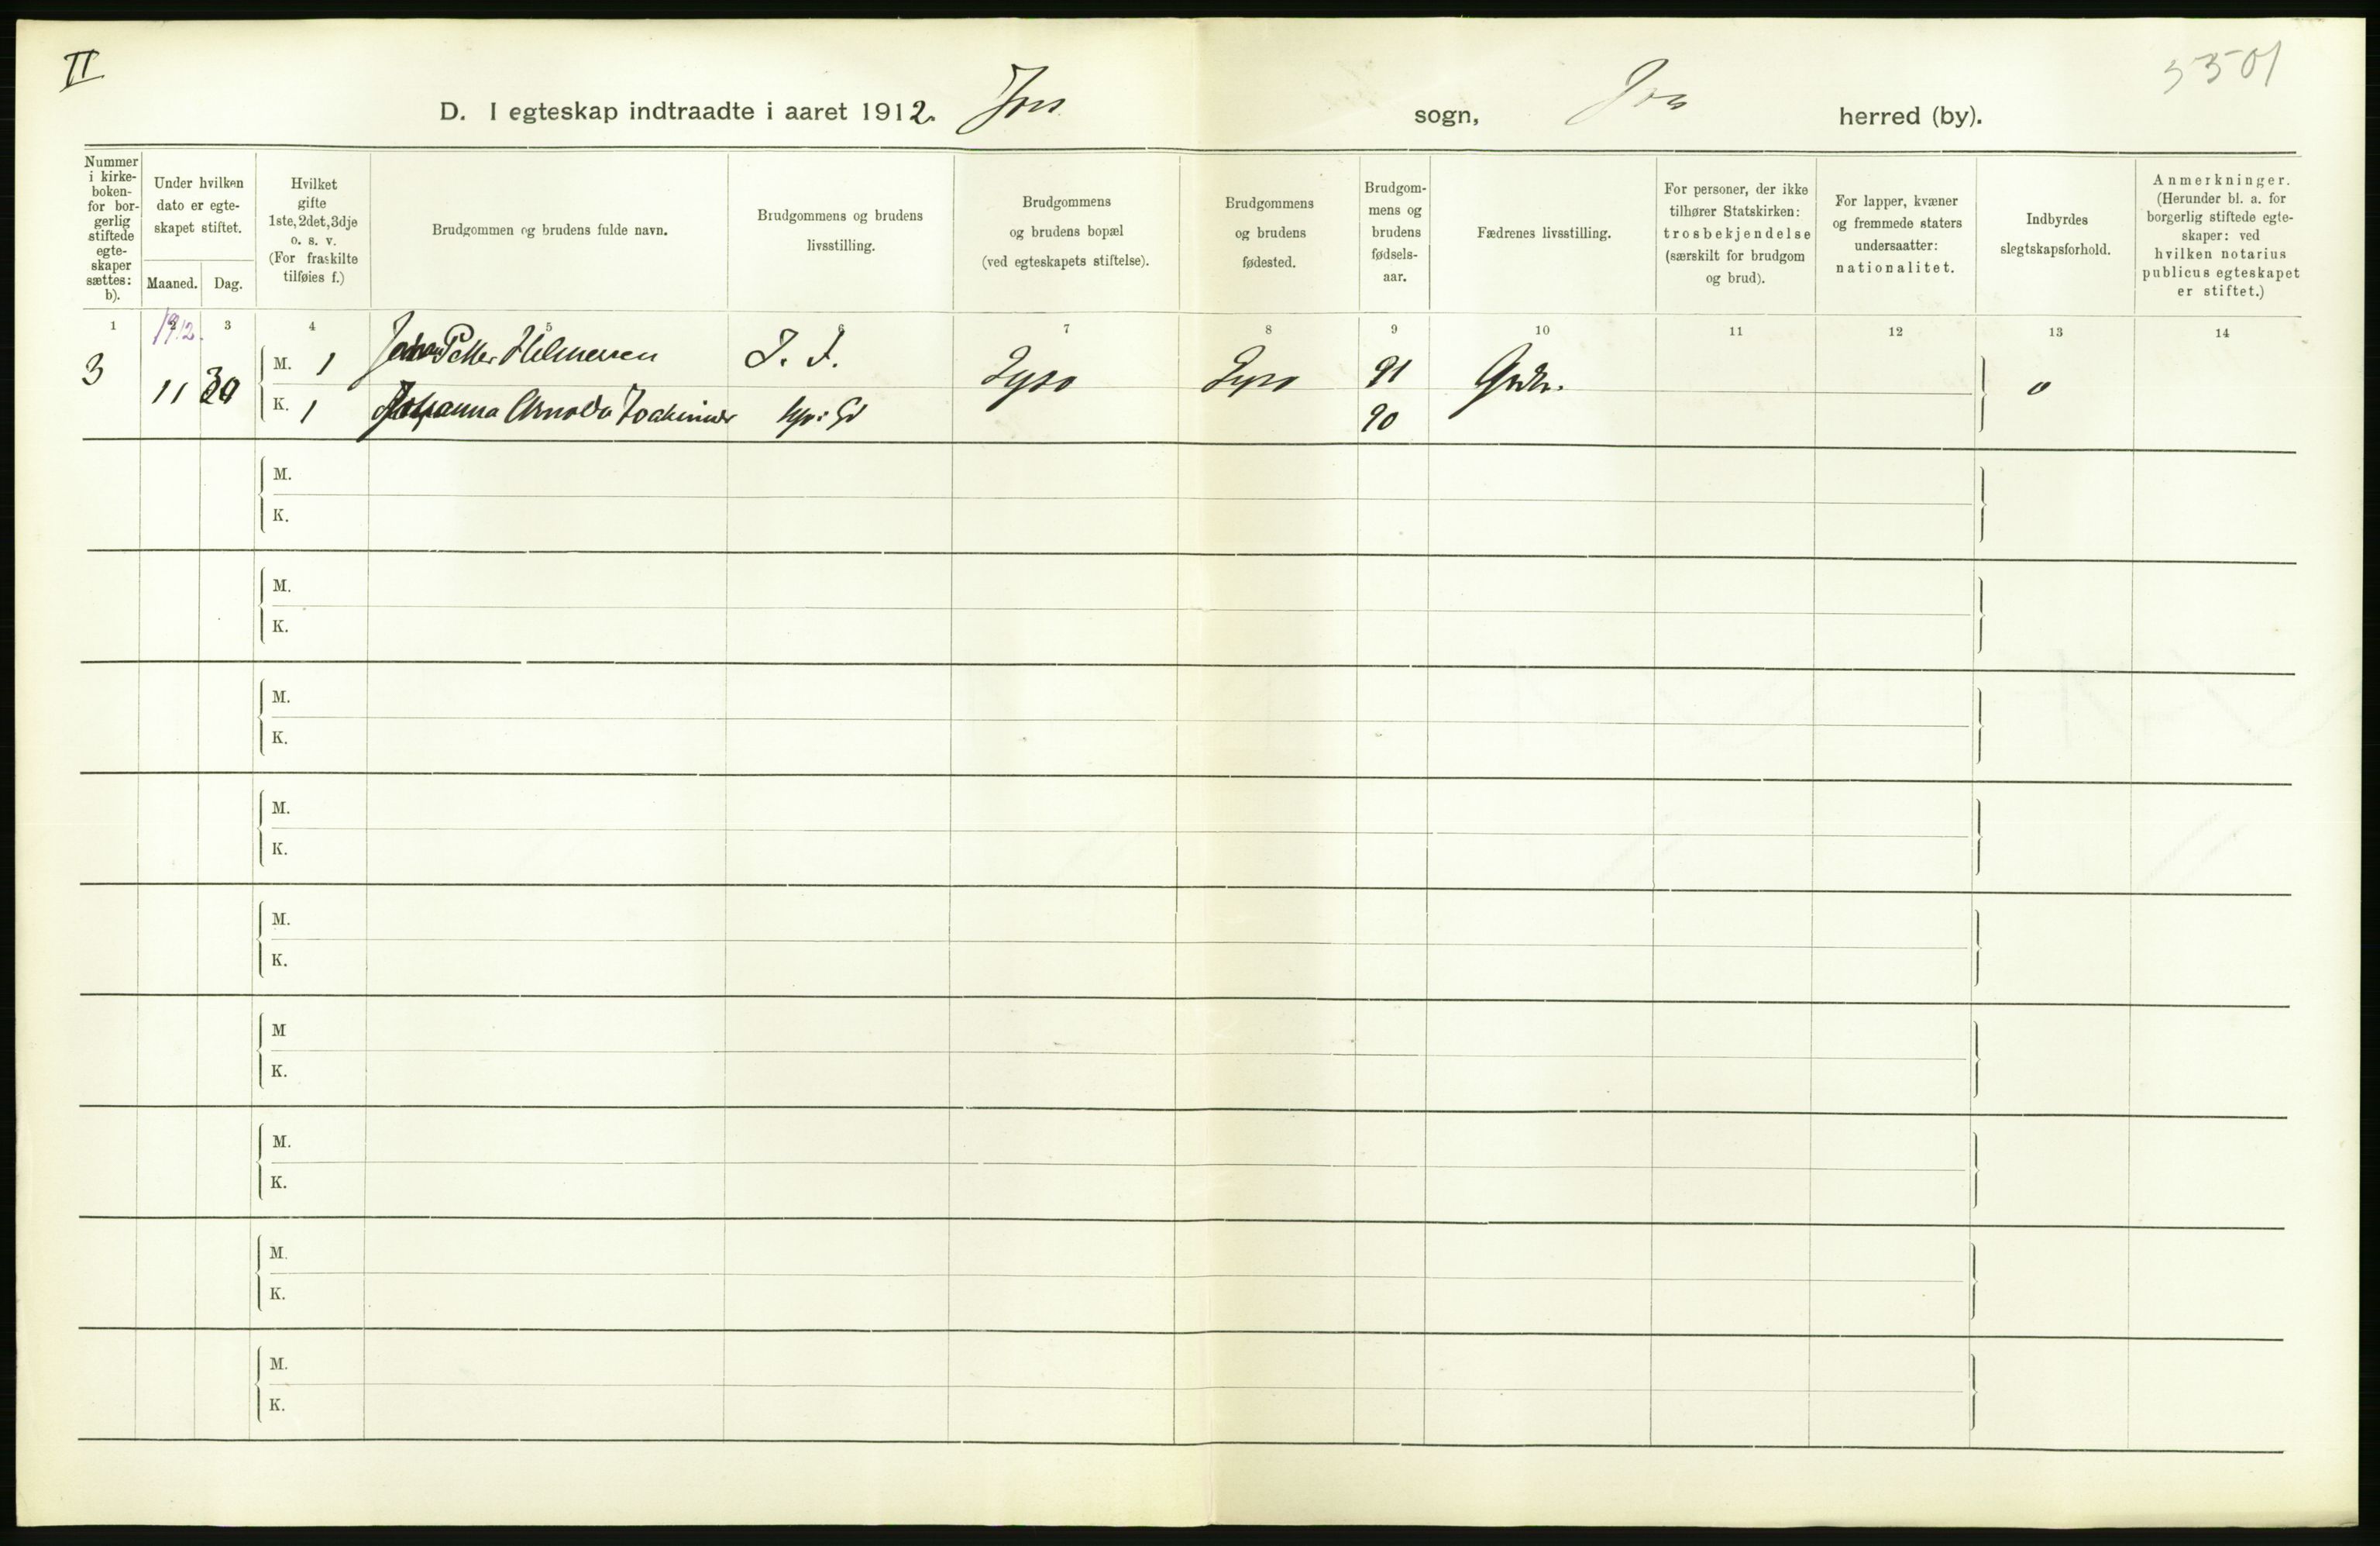 II
5501
D. I egteskap indtraadte i aaret 1912. Joa sogn, Joa herred (by).
Nummer i kirke-boken- for bor-gerlig stiftede egte-skaper sættes: b).
Under hvilken dato er egte-skapet stiftet.
Maaned. Dag.
Hvilket gifte 1ste, 2det, 3dje o. s. v. (For fraskilte tilføies f.)
Brudgommen og brudens fulde navn.
Brudgommens og brudens livsstilling.
Brudgommens og brudens bopæl (ved egteskapets stiftelse).
Brudgommens og brudens fødested.
Brudgom-mens og brudens fødsels-aar.
Fædrenes livsstilling.
For personer, der ikke tilhører Statskirken: trosbekjendelse (særskilt for brudgom og brud).
For lapper, kvæner og fremmede staters undersaatter: nationalitet.
Indbyrdes slegtskapsforhold.
Anmerkninger. (Herunder bl. a. for borgerlig stiftede egte-skaper: ved hvilken notarius publicus egteskapet er stiftet.)
1 2 3 4 5 6 7 8 9 10 11 12 13 14
1912.
3 11 30 M. 1 Johan Petter Hilmersen 91 0
K. 1 Johanna Arnolda 90
M.
K.
M.
K.
M.
K.
M.
K.
M.
K.
M
K.
M.
K.
M.
K.
M.
K.